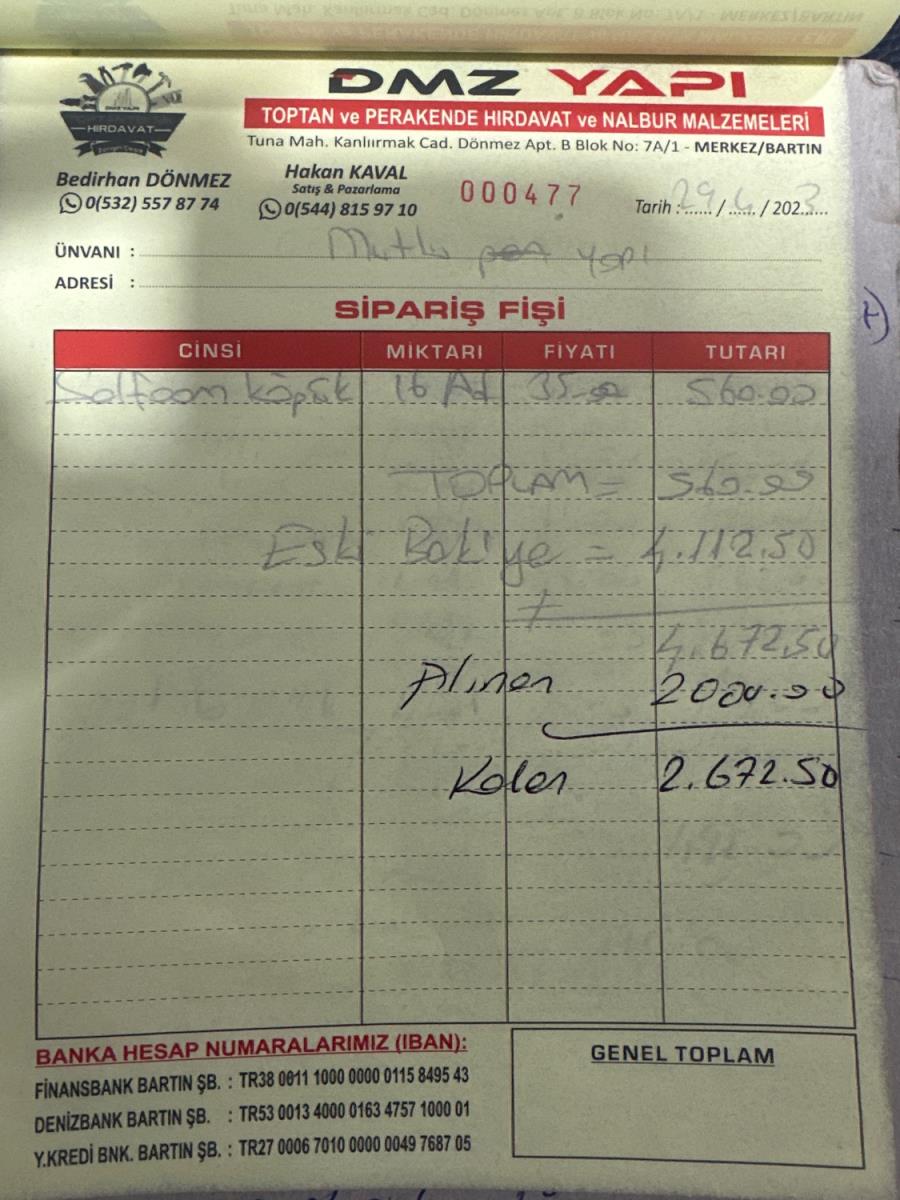 DMZ YAPI
DMZ YAPI
HIRDAVAT
TOPTAN ve PERAKENDE HIRDAVAT ve NALBUR MALZEMELERİ
Tuna Mah. Kanlıırmak Cad. Dönmez Apt. B Blok No: 7A/1 - MERKEZ/BARTIN
Bedirhan DÖNMEZ
0(532) 557 87 74
Hakan KAVAL
Satış & Pazarlama
0(544) 815 97 10
000477
Tarih : 29 / 4 / 2023
ÜNVANI : Mutlu pen yapı
ADRESİ :
SİPARİŞ FİŞİ
CİNSİ MİKTARI FİYATI TUTARI
Solfoam köpük 16 Ad 35.00 560.00
TOPLAM = 560.00
Eski Bakiye = 4.112.50
+
4.672,50
Alınan 2000.00
Kalan 2.672.50
BANKA HESAP NUMARALARIMIZ (IBAN):
FİNANSBANK BARTIN ŞB. : TR38 0011 1000 0000 0115 8495 43
DENİZBANK BARTIN ŞB. : TR53 0013 4000 0163 4757 1000 01
Y.KREDİ BNK. BARTIN ŞB. : TR27 0006 7010 0000 0049 7687 05
GENEL TOPLAM